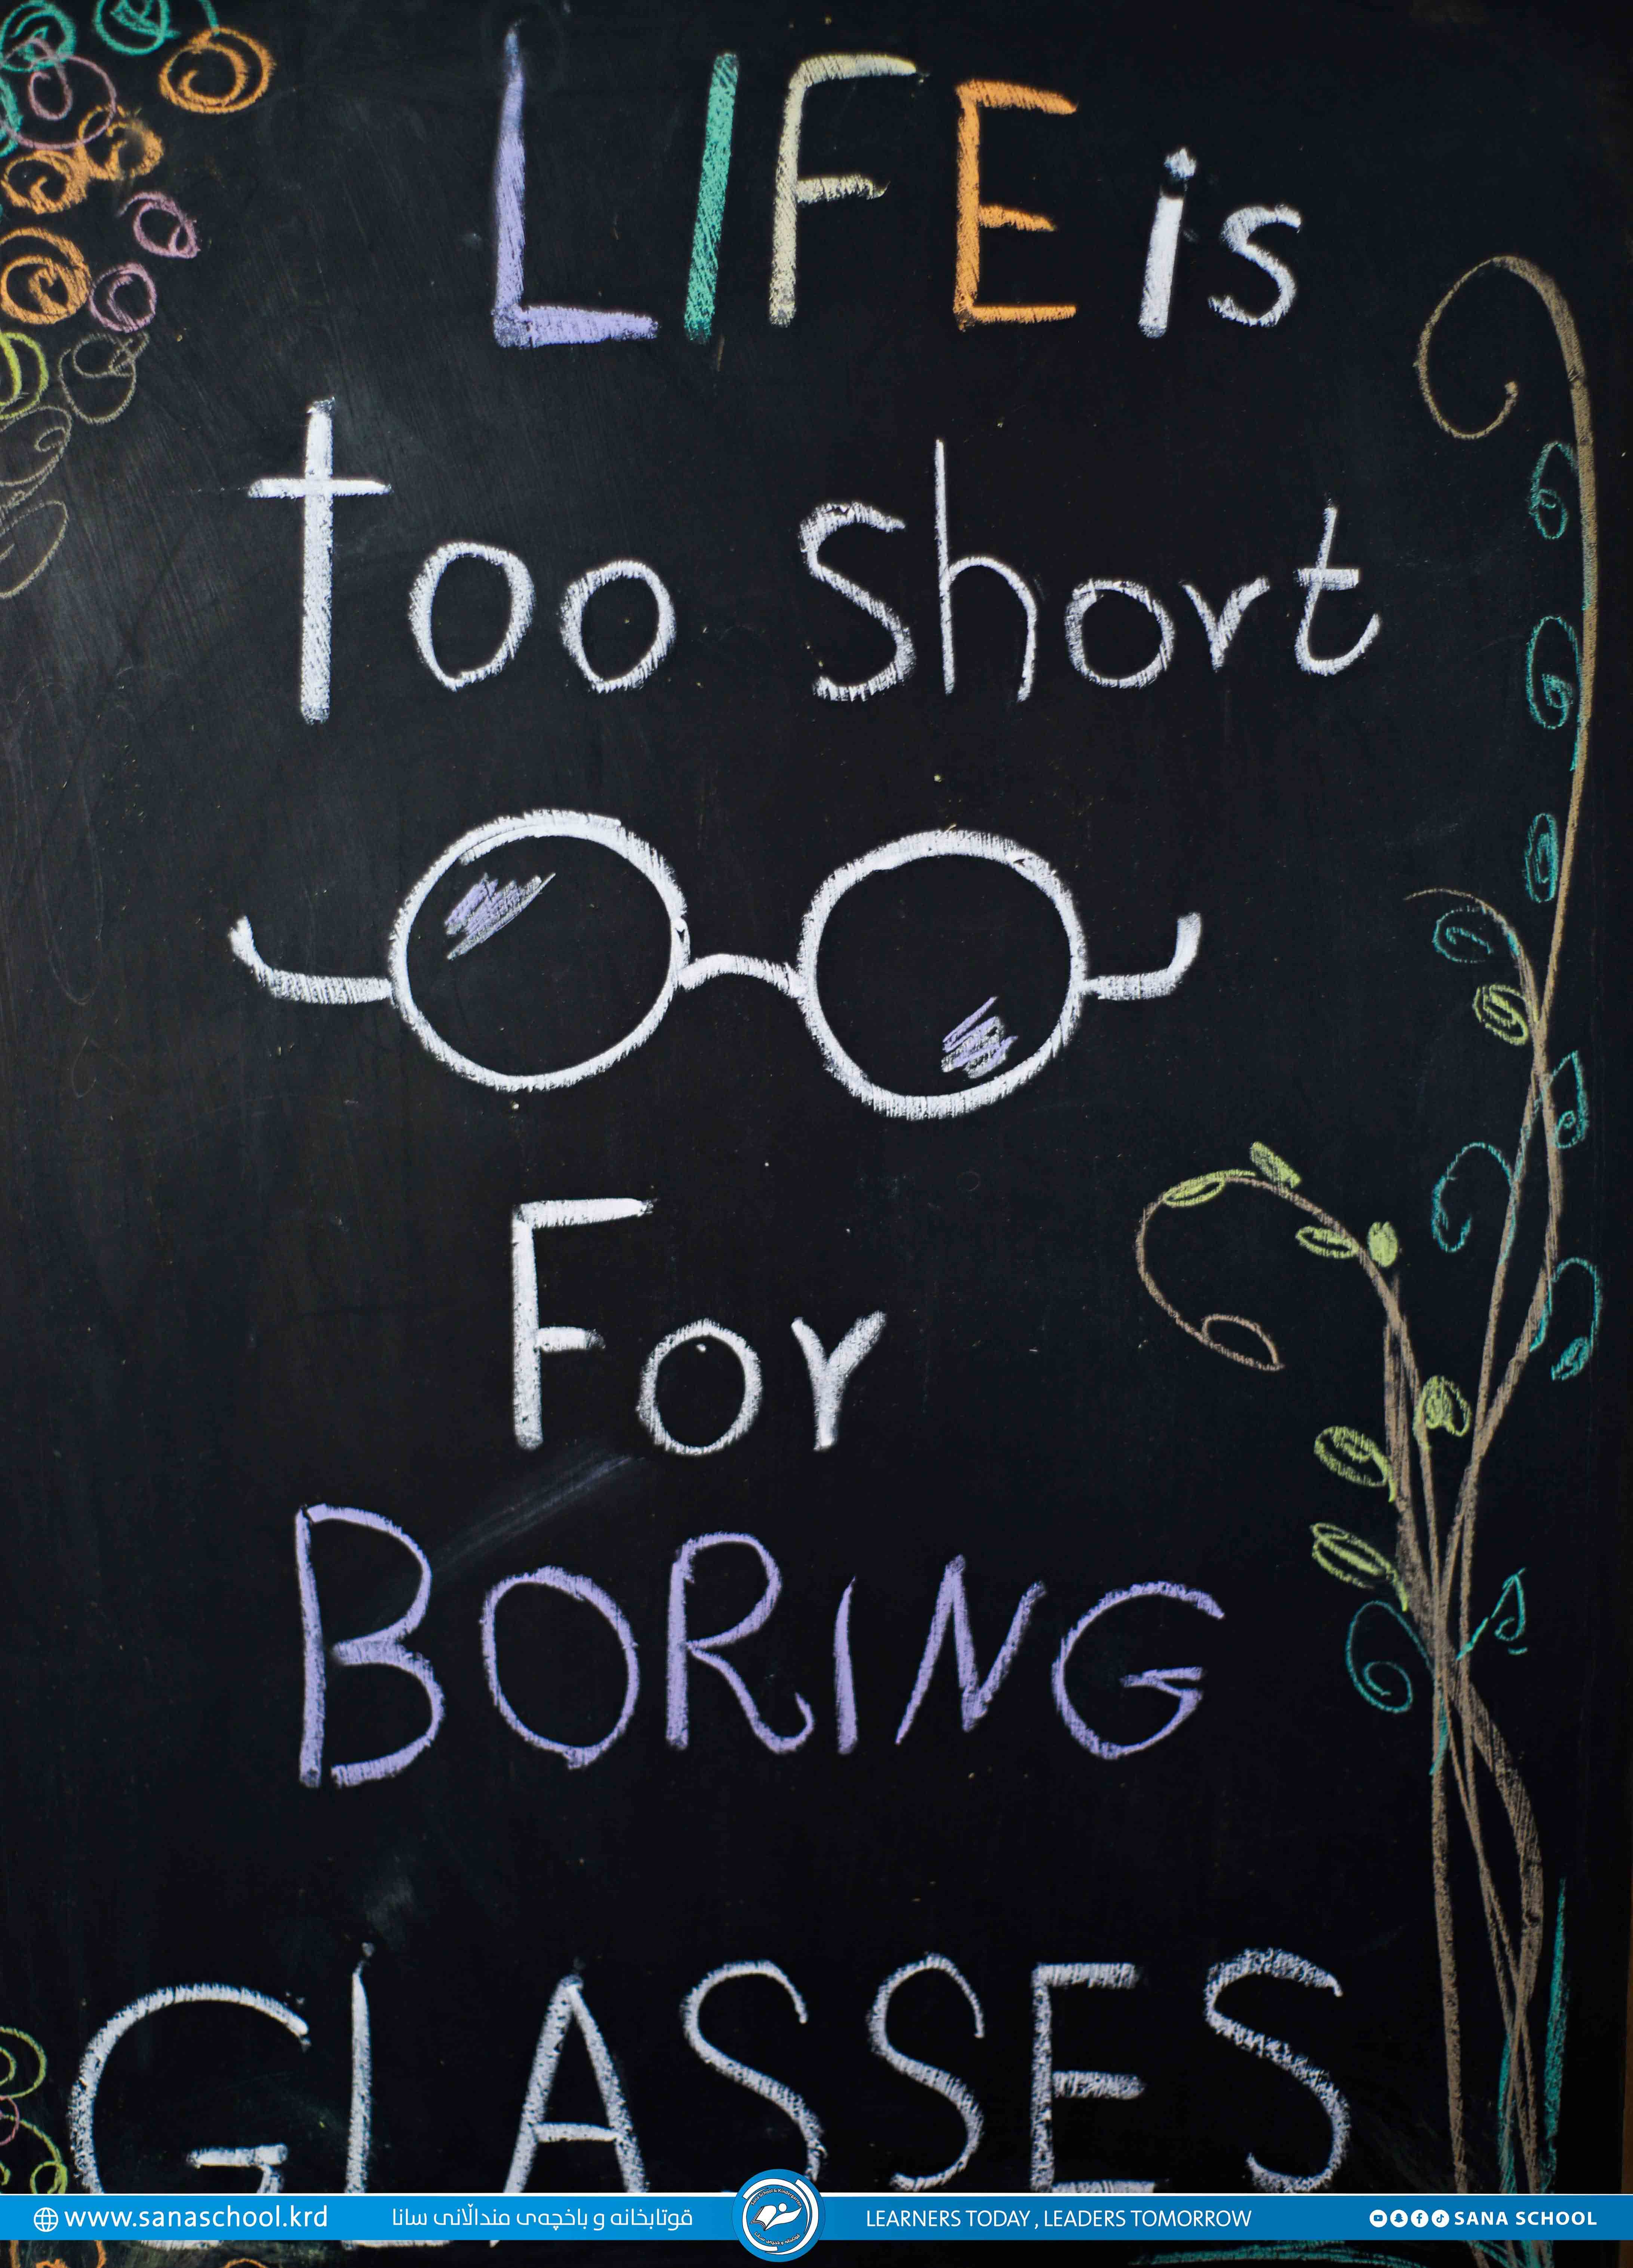 LIFE is
too short
For
BORING
GLASSES
www.sanaschool.krd
قوتابخانە و باخچەی منداڵانی سانا
LEARNERS TODAY , LEADERS TOMORROW
SANA SCHOOL